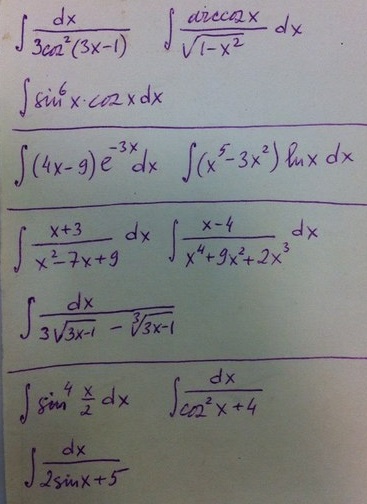 ∫ dx / 3cos²(3x-1)    ∫ arccosx / √(1-x²) dx
∫ sin⁶x · cosx dx
∫ (4x-9)e^(-3x) dx    ∫ (x⁵-3x²) lnx dx
∫ x+3 / x²-7x+9 dx    ∫ x-4 / x⁴+9x²+2x³ dx
∫ dx / 3√(3x-1) - ∛(3x-1)
∫ sin⁴ x/2 dx    ∫ dx / cos²x+4
∫ dx / 2sinx+5